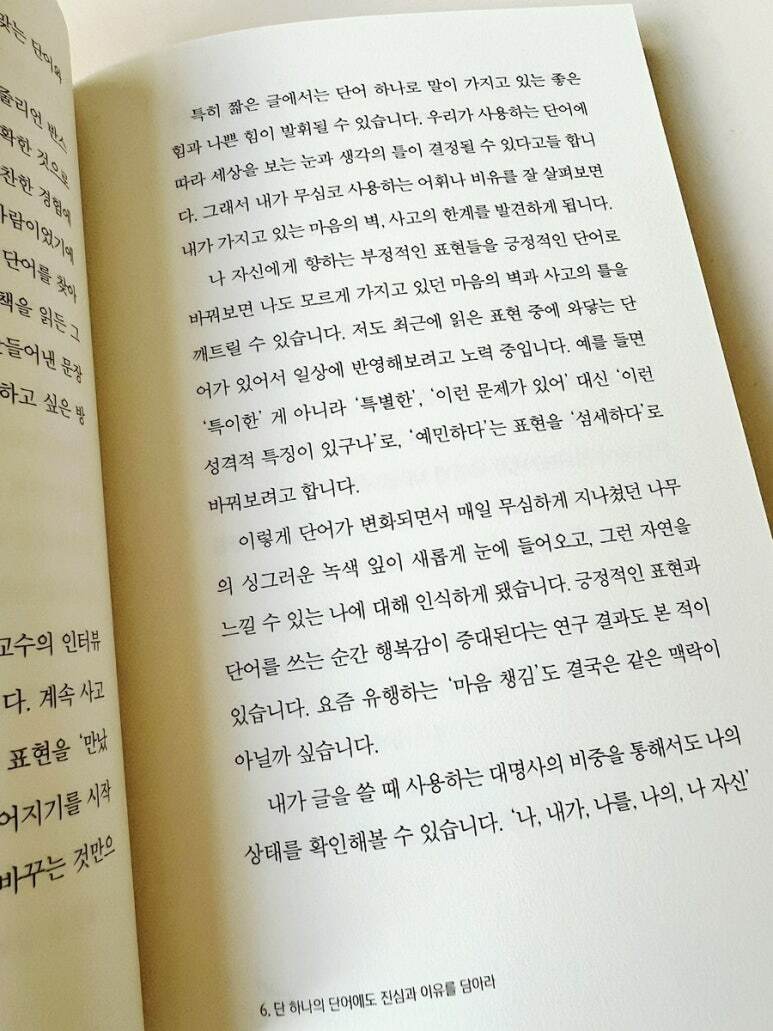 맞는 단어와
줄리언 반스
확한 것으로
찬한 경험에
사람이었기에
단어를 찾아
책을 읽든 그
만들어낸 문장
하고 싶은 방
고수의 인터뷰
다. 계속 사고
표현을 ‘만났
어지기를 시작
바꾸는 것만으
특히 짧은 글에서는 단어 하나로 말이 가지고 있는 좋은
힘과 나쁜 힘이 발휘될 수 있습니다. 우리가 사용하는 단어에
따라 세상을 보는 눈과 생각의 틀이 결정될 수 있다고들 합니
다. 그래서 내가 무심코 사용하는 어휘나 비유를 잘 살펴보면
내가 가지고 있는 마음의 벽, 사고의 한계를 발견하게 됩니다.
나 자신에게 향하는 부정적인 표현들을 긍정적인 단어로
바꿔보면 나도 모르게 가지고 있던 마음의 벽과 사고의 틀을
깨트릴 수 있습니다. 저도 최근에 읽은 표현 중에 와닿는 단
어가 있어서 일상에 반영해보려고 노력 중입니다. 예를 들면
‘특이한’ 게 아니라 ‘특별한’, ‘이런 문제가 있어’ 대신 ‘이런
성격적 특징이 있구나’로, ‘예민하다’는 표현을 ‘섬세하다’로
바꿔보려고 합니다.
이렇게 단어가 변화되면서 매일 무심하게 지나쳤던 나무
의 싱그러운 녹색 잎이 새롭게 눈에 들어오고, 그런 자연을
느낄 수 있는 나에 대해 인식하게 됐습니다. 긍정적인 표현과
단어를 쓰는 순간 행복감이 증대된다는 연구 결과도 본 적이
있습니다. 요즘 유행하는 ‘마음 챙김’도 결국은 같은 맥락이
아닐까 싶습니다.
내가 글을 쓸 때 사용하는 대명사의 비중을 통해서도 나의
상태를 확인해볼 수 있습니다. ‘나, 내가, 나를, 나의, 나 자신’
6. 단 하나의 단어에도 진심과 이유를 담아라